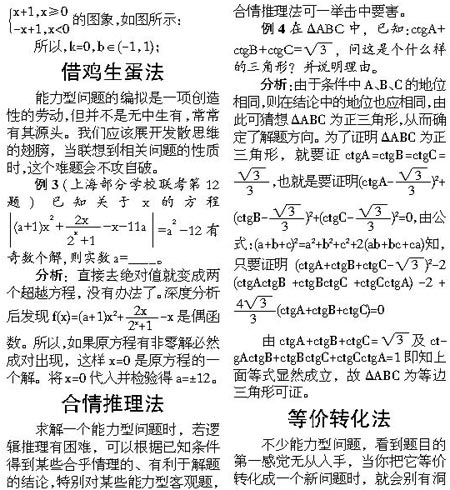 {x+1,x≥0
-x+1,x<0 的图象,如图所示:
所以,k=0,b∈(-1,1);
借鸡生蛋法
能力型问题的编拟是一项创造
性的劳动,但并不是无中生有,常常
有其源头。我们应该展开发散思维
的翅膀，当联想到相关问题的性质
时,这个难题会不攻自破。
例3(上海部分学校联考第12
题) 已知关于x的方程
|(a+1)x²+2x/(2ˣ+1)-x-11a|=a²-12有
奇数个解,则实数a=____。
分析：直接去绝对值就变成两
个超越方程，没有办法了。深度分析
后发现f(x)=(a+1)x²+2x/(2ˣ+1)-x是偶函
数。所以,如果原方程有非零解必然
成对出现，这样x=0是原方程的一
个解。将x=0代入并检验得a=±12。
合情推理法
求解一个能力型问题时，若逻
辑推理有困难，可以根据已知条件
得到某些合乎情理的、有利于解题
的结论,特别对某些能力型客观题,
合情推理法可一举击中要害。
例4在ΔABC中，已知:ctgA+
ctgB+ctgC=√3，问这是个什么样
的三角形？并说明理由。
分析:由于条件中A、B、C的地位
相同,则在结论中的地位也应相同,由
此可猜想ΔABC为正三角形,从而确
定了解题方向。为了证明ΔABC为正
三角形，就要证ctgA=ctgB=ctgC=
√3/3,也就是要证明(ctgA-√3/3)²+
(ctgB-√3/3)²+(ctgC-√3/3)²=0,由公
式:(a+b+c)²=a²+b²+c²+2(ab+bc+ca)知,
只要证明 (ctgA+ctgB+ctgC-√3)²-2
(ctgActgB +ctgBctgC +ctgCctgA) -2 +
4√3/3(ctgA+ctgB+ctgC)=0
由ctgA+ctgB+ctgC=√3及ct-
gActgB+ctgBctgC+ctgCctgA=1即知上
面等式显然成立，故ΔABC为等边
三角形可证。
等价转化法
不少能力型问题，看到题目的
第一感觉无从入手，当你把它等价
转化成一个新问题时，就会别有洞